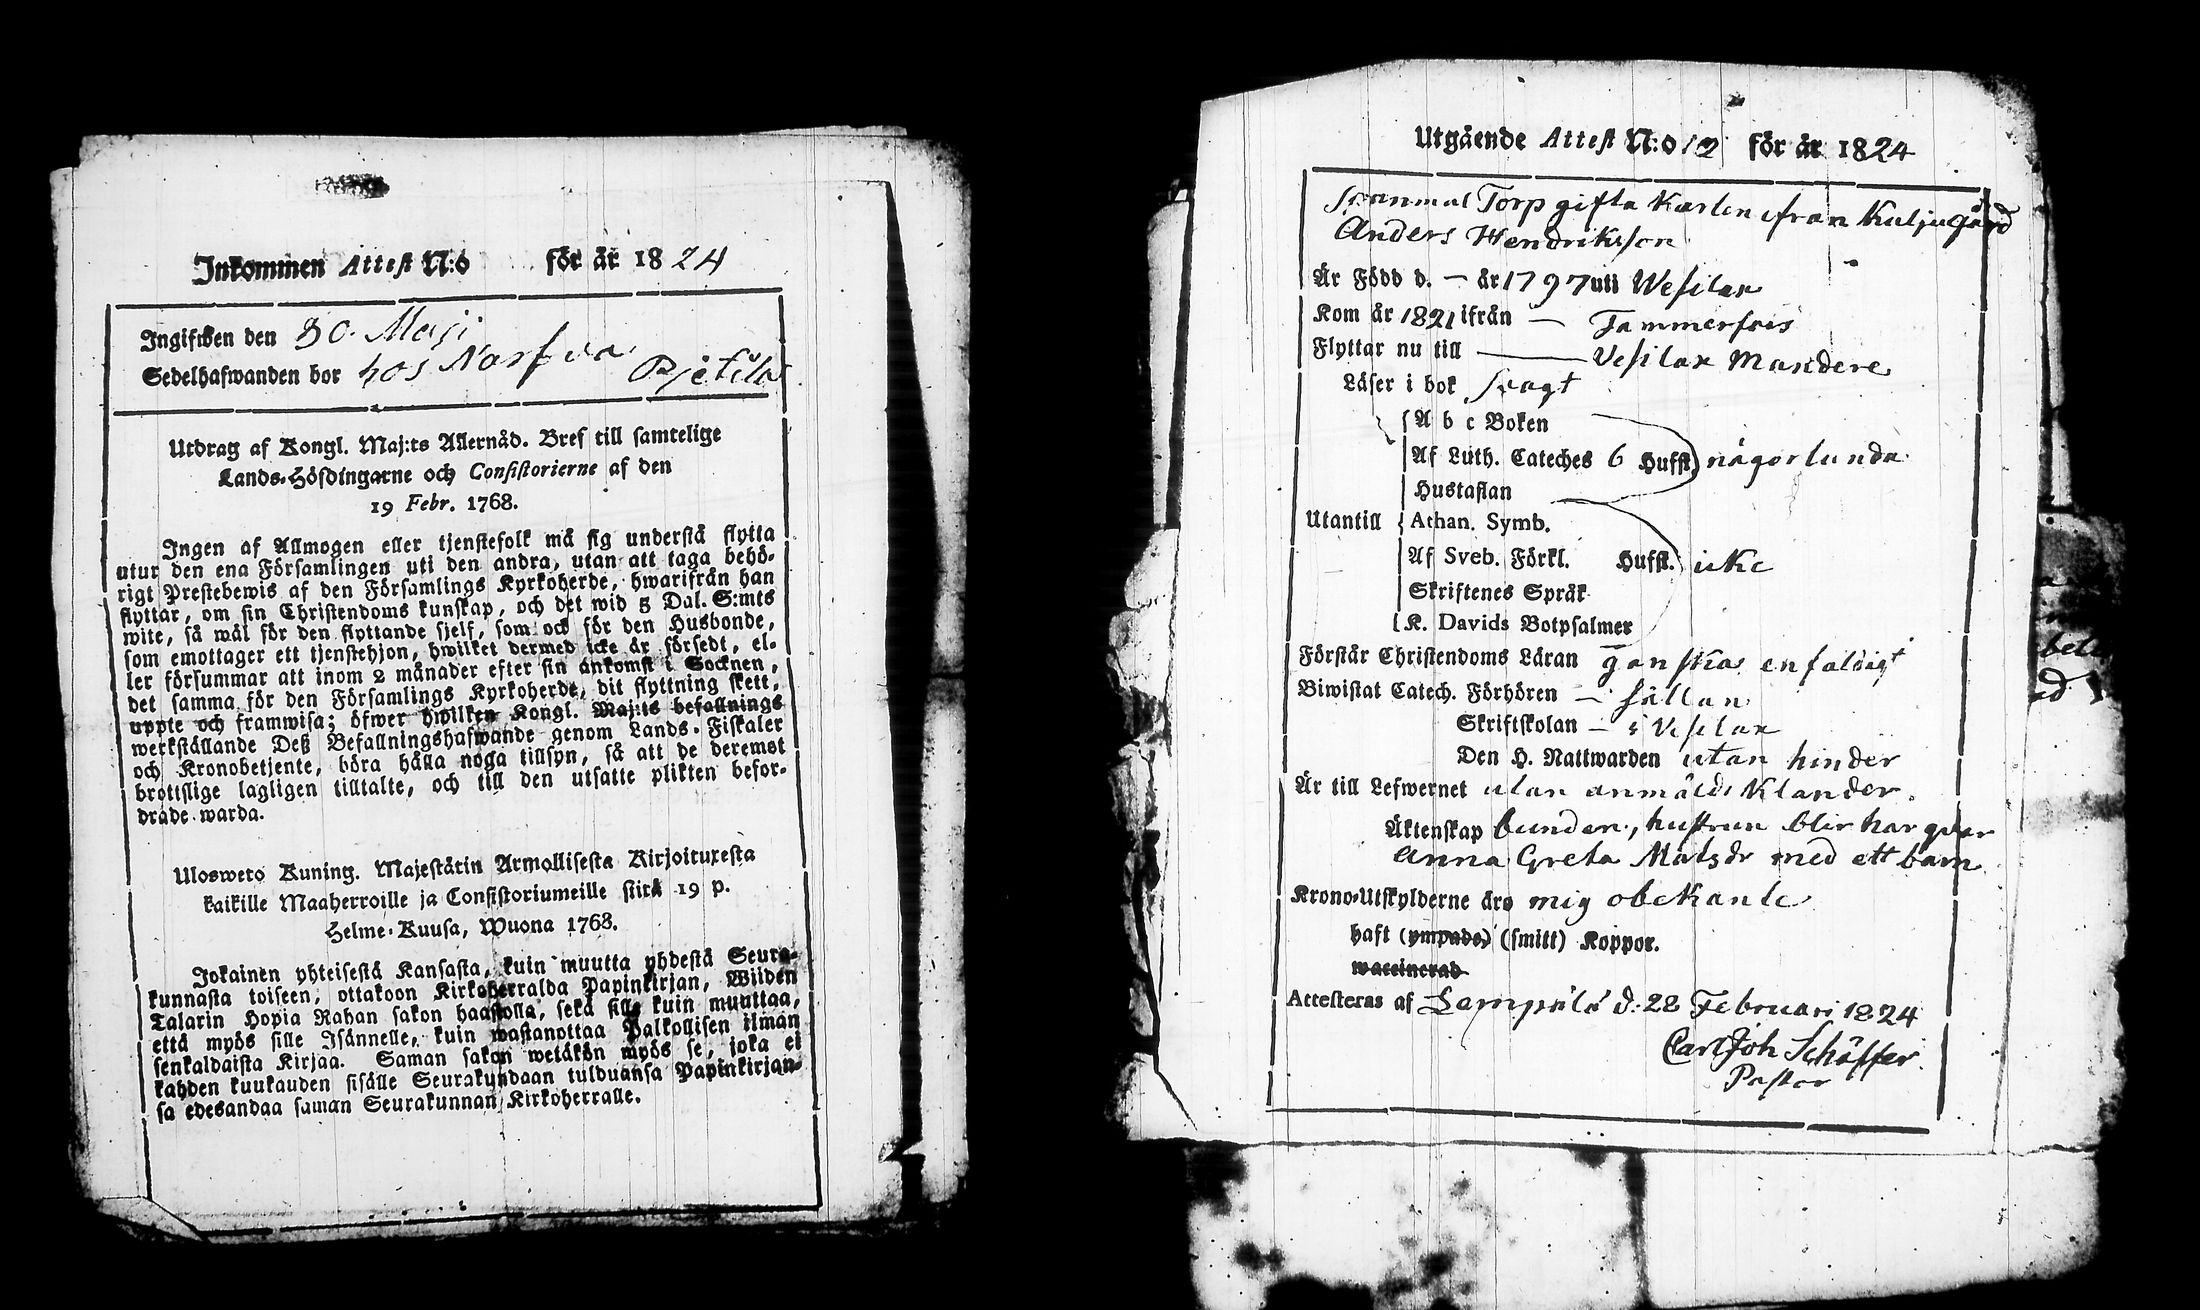 Inkommen Attest N:o för år 1824
Ingifwen den 30. Maji
Sedelhafwanden bor hos
Utdrag af Kongl. Maj:ts Allernåd. Bref till samtelige
Lands-Höfdingarne och Consistorierne af den
19 Febr. 1768.
Ingen af Allmogen eller tjenstefolk må sig understå flytta
utur den ena Församlingen uti den andra, utan att taga behö-
rigt Prestebewis af den Församlings Kyrkoherde, hwarifrån han
flyttar, om sin Christendoms kunskap, och det wid 5 Dal. S:mts
wite, så wäl för den flyttande sjelf, som ock för den Husbonde,
som emottager ett tjenstehjon, hwilket dermed icke är försedt, el-
ler försummar att inom 2 månader efter sin ankomst i Socknen,
det samma för den Församlings Kyrkoherde, dit flyttning skett,
uppte och framwisa; öfwer hwilken Kongl. Maj:ts befallnings
werkställande Deß Befallningshafwande genom Lands-Fiskaler
och Kronobetjente, böra hålla noga tillsyn, så att de deremot
brottslige lagligen tilltalte, och till den utsatte plikten befor-
drade warda.
Ulosweto Kuning. Majestätin Armollisesta Kirjoituxesta
kaikille Maaherroille ja Consistoriumeille siitä 19 p.
Helme-Kuusa, Wuona 1768.
Jokainen yhteisestä Kansasta, kuin muutta yhdestä Seura-
kunnasta toiseen, ottakoon Kirkoherralda Papinkirjan, Wiiden
Talarin Hopia Rahan sakon haastolla, sekä sille kuin muuttaa,
että myös sille Isännelle, kuin wastanottaa Palkollisen ilman
senkaldaista Kirjaa. Saman sakon wetäkön myös se, joka ei
kahden kuukauden sisälle Seurakundaan tulduansa Papinkirjan-
sa edesandaa saman Seurakunnan Kirkoherralle.
Utgående Attest N:o 12 för år 1824
Torp gifta Karlen ifran Kuljugård
Anders Hendriksson
Är Född d. — år 1797 uti Wesilax
Kom år 1821 ifrån — Tammerfors
Flyttar nu till — Vesilax Mandere
Läser i bok svagt
A b c Boken
Af Luth. Cateches 6 Hufst. någorlunda
Hustaflan
Utantill Athan. Symb.
Af Sveb. Förkl. Hufst. icke
Skriftenes Språk
K. Davids Botpsalmer
Förstår Christendoms Läran ganska enfaldigt
Biwistat Catech. Förhören — sällan
Skriftskolan — i Vesilax
Den H. Nattwarden utan hinder
Är till Lefwernet utan anmäldt Klander.
Äktenskap bunden, hustrun blir har qvar
Anna Greta Matsdr med ett barn
Krono-Utskylderne äro mig obekante
haft (ympade) (smitt) Koppor.
waccinerad
Attesteras af Lempälä d. 28 Februari 1824
Carl Joh Schäffer
Pastor